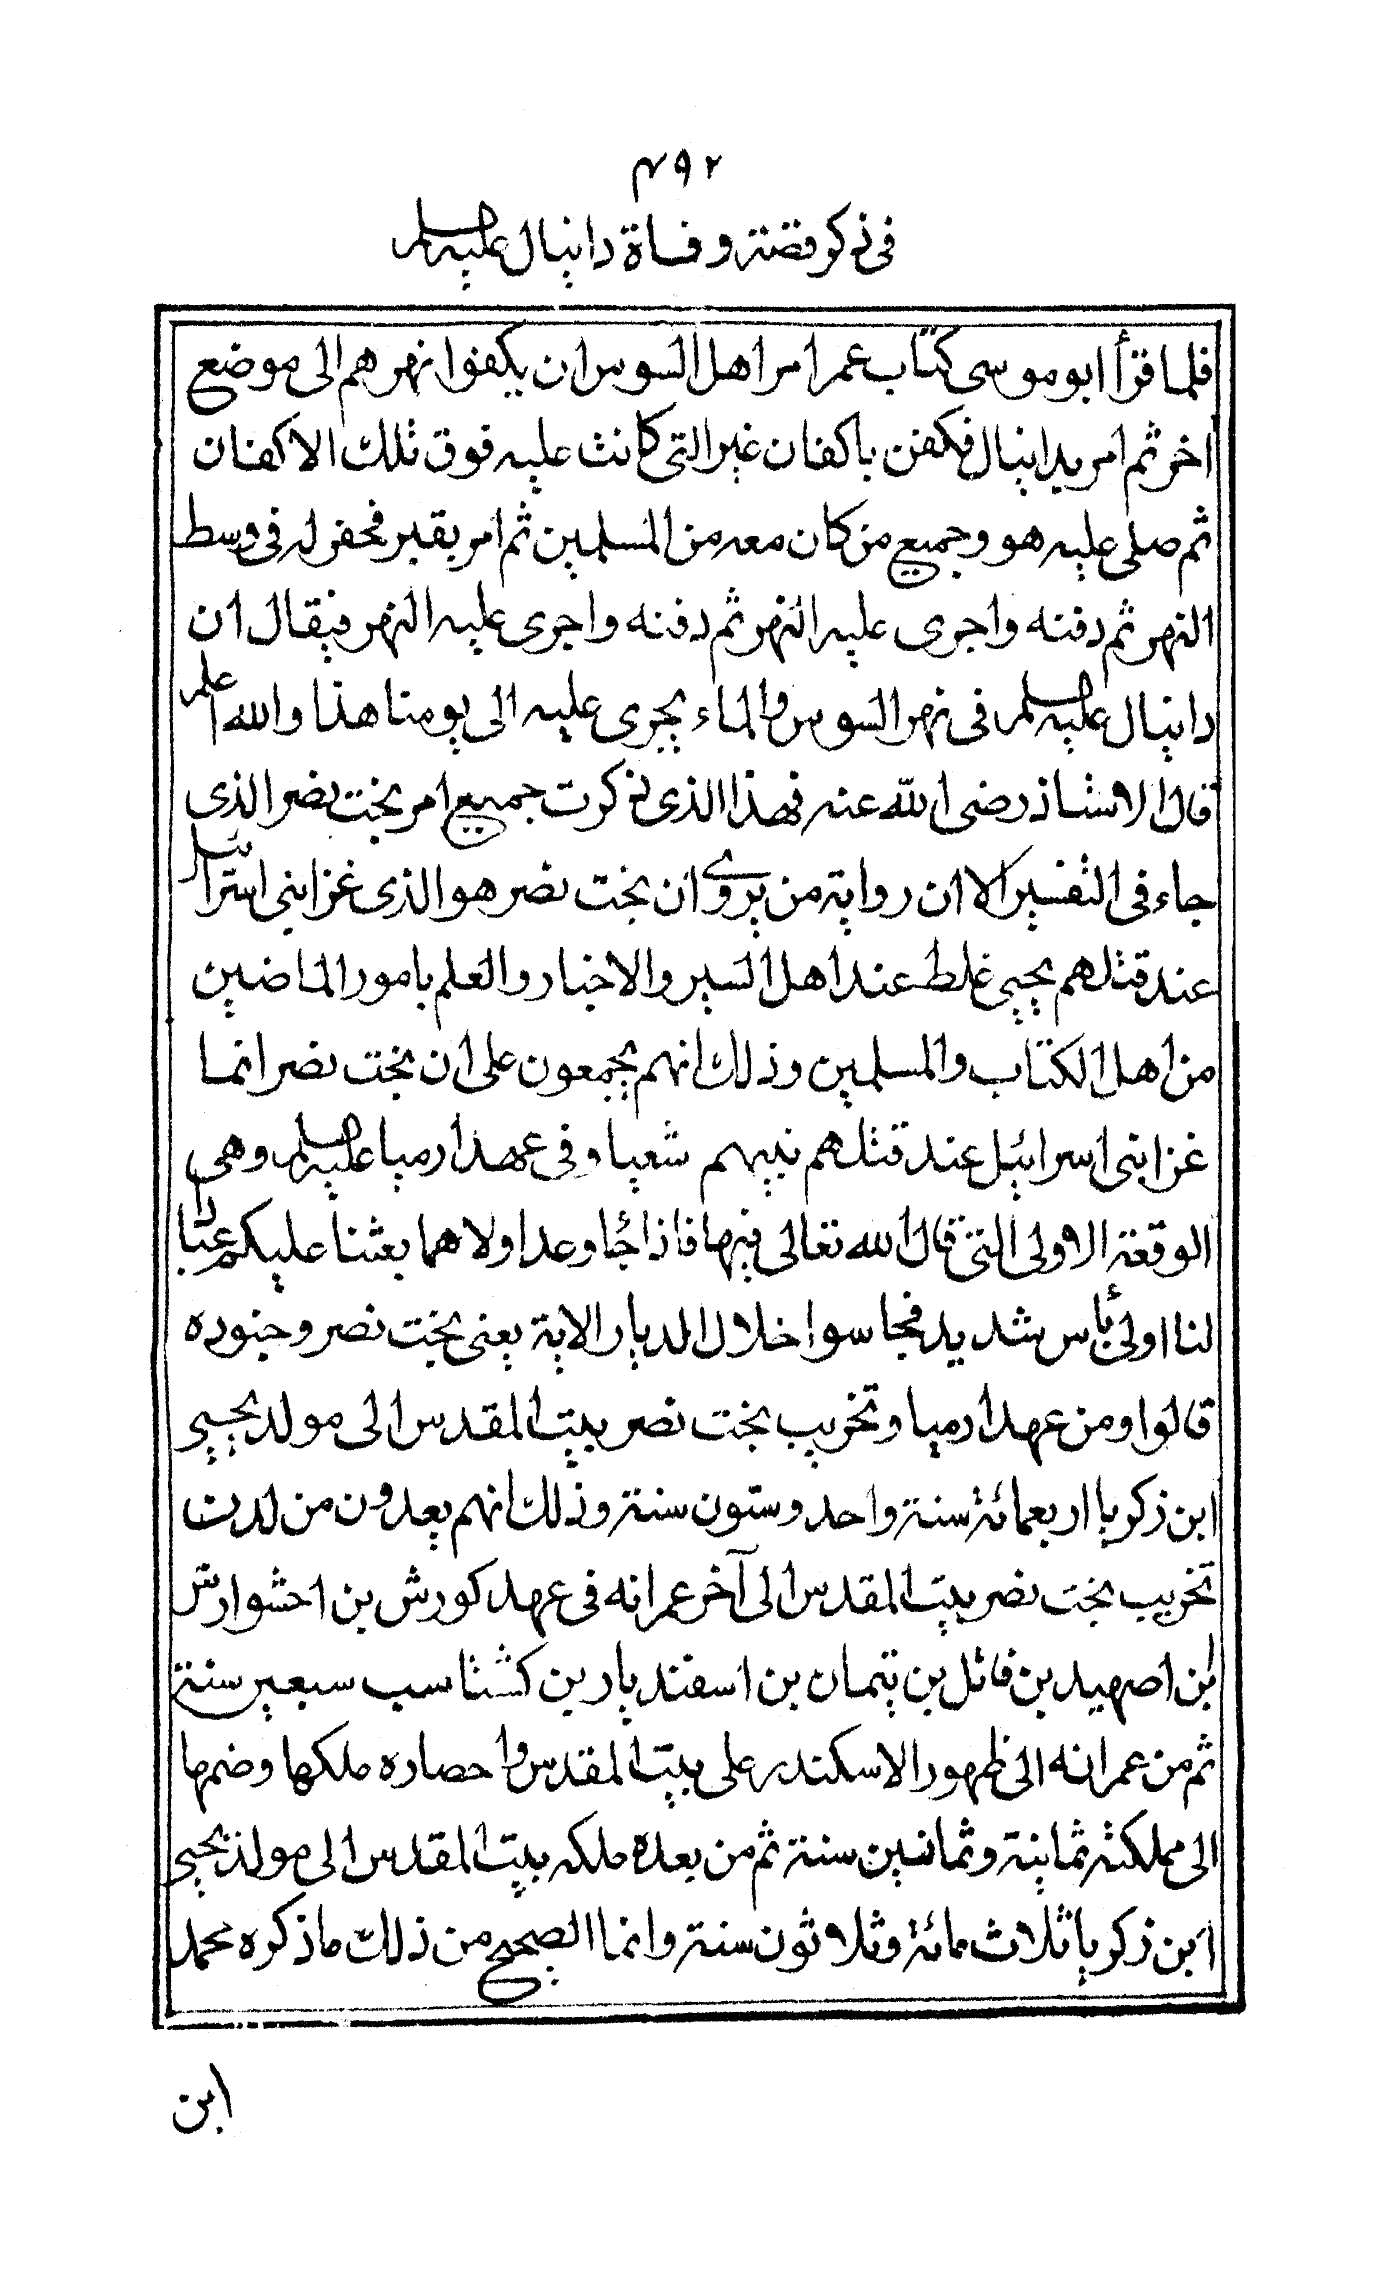 ٤٩٢
في ذكر قصة وفاة دانيال عليه السلم
فلما قرأ ابو موسى كتاب عمر امر اهل السوس ان يكفوا نهرهم الى موضع
اخر ثم امر بدانيال فكفن باكفان غير التي كانت عليه فوق تلك الاكفان
ثم صلى عليه هو وجميع من كان معه من المسلمين ثم امر بقبر فحفر له في وسط
النهر ثم دفنه واجرى عليه النهر ثم دفنه واجرى عليه النهر فيقال ان
دانيال عليه السلم في نهر السوس والماء يجرى عليه الى يومنا هذا والله اعلم
قال الاستاذ رضى الله عنه فهذا الذى ذكرت جميع امر بخت نصر الذى
جاء في التفسير الا ان رواية من يروي ان بخت نصر هو الذى غزا بني اسرائيل
عند قتلهم يحيى غلط عند اهل السير والاخبار والعلم بامور الماضين
من اهل الكتاب والمسلمين وذلك انهم يجمعون على ان بخت نصر انما
غزا بنى اسرائيل عند قتلهم نبيهم شعيا وفى عهد ارميا عليه السلم وهى
الوقعة الاولى التى قال الله تعالى فيها فاذا جاء وعد اولاهما بعثنا عليكم عبادا
لنا اولى بأس شديد فجاسوا خلال الديار الاية يعنى بخت نصر وجنوده
قالوا ومن عهد ارميا وتخريب بخت نصر بيت المقدس الى مولد يحيى
ابن زكريا اربعمائة سنة واحد وستون سنة وذلك انهم يعدون من لدن
تخريب بخت نصر بيت المقدس الى آخر عمرانه فى عهد كورش بن احشوارش
ابن اصهبد بن فائل بن يتمان بن اسفنديار بن كشتاسب سبعين سنة
ثم من عمرانه الى ظهور الاسكندر على بيت المقدس واحصاره ملكها وضمها
الى مملكته ثمانية وثمانين سنة ثم من بعده ملكه بيت المقدس الى مولد يحيى
ابن زكريا ثلاث مائة وثلاثون سنة وانما الصحيح من ذلك ما ذكره محمد
ابن